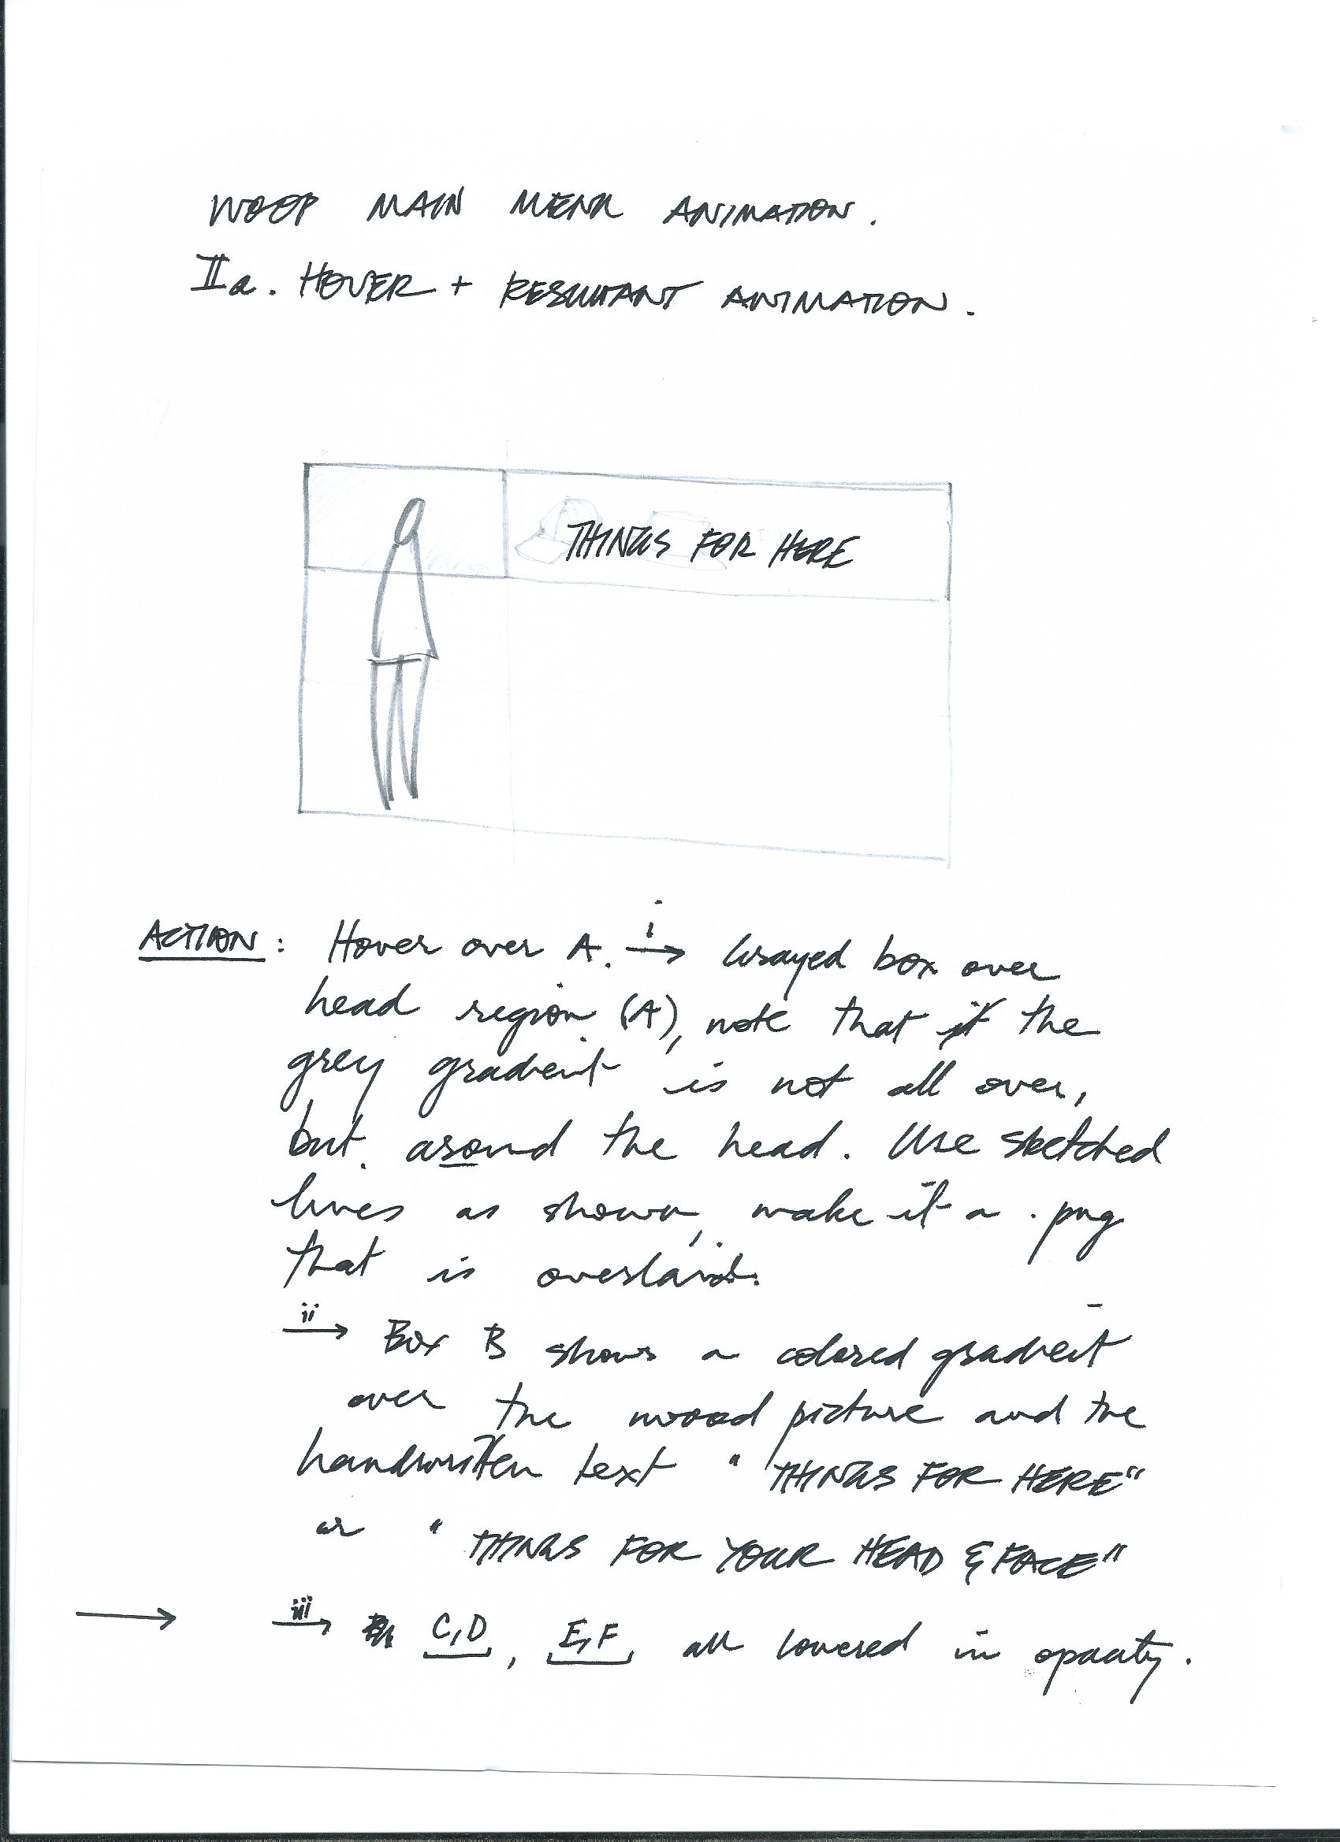 WOOP MAIN MENU ANIMATION.
IIa. HOVER + RESULTANT ANIMATION.
THINGS FOR HERE
ACTION: Hover over A. i→ Grayed box over
head region (A), note that the
grey gradient is not all over,
but around the head. Use sketched
lines as shown, make it a .png
that is overlaid.
ii→ Box B shows a colored gradient
over the mood picture and the
handwritten text "THINGS FOR HERE"
or "THINGS FOR YOUR HEAD & FACE"
→ iii→ C,D, E,F all lowered in opacity.